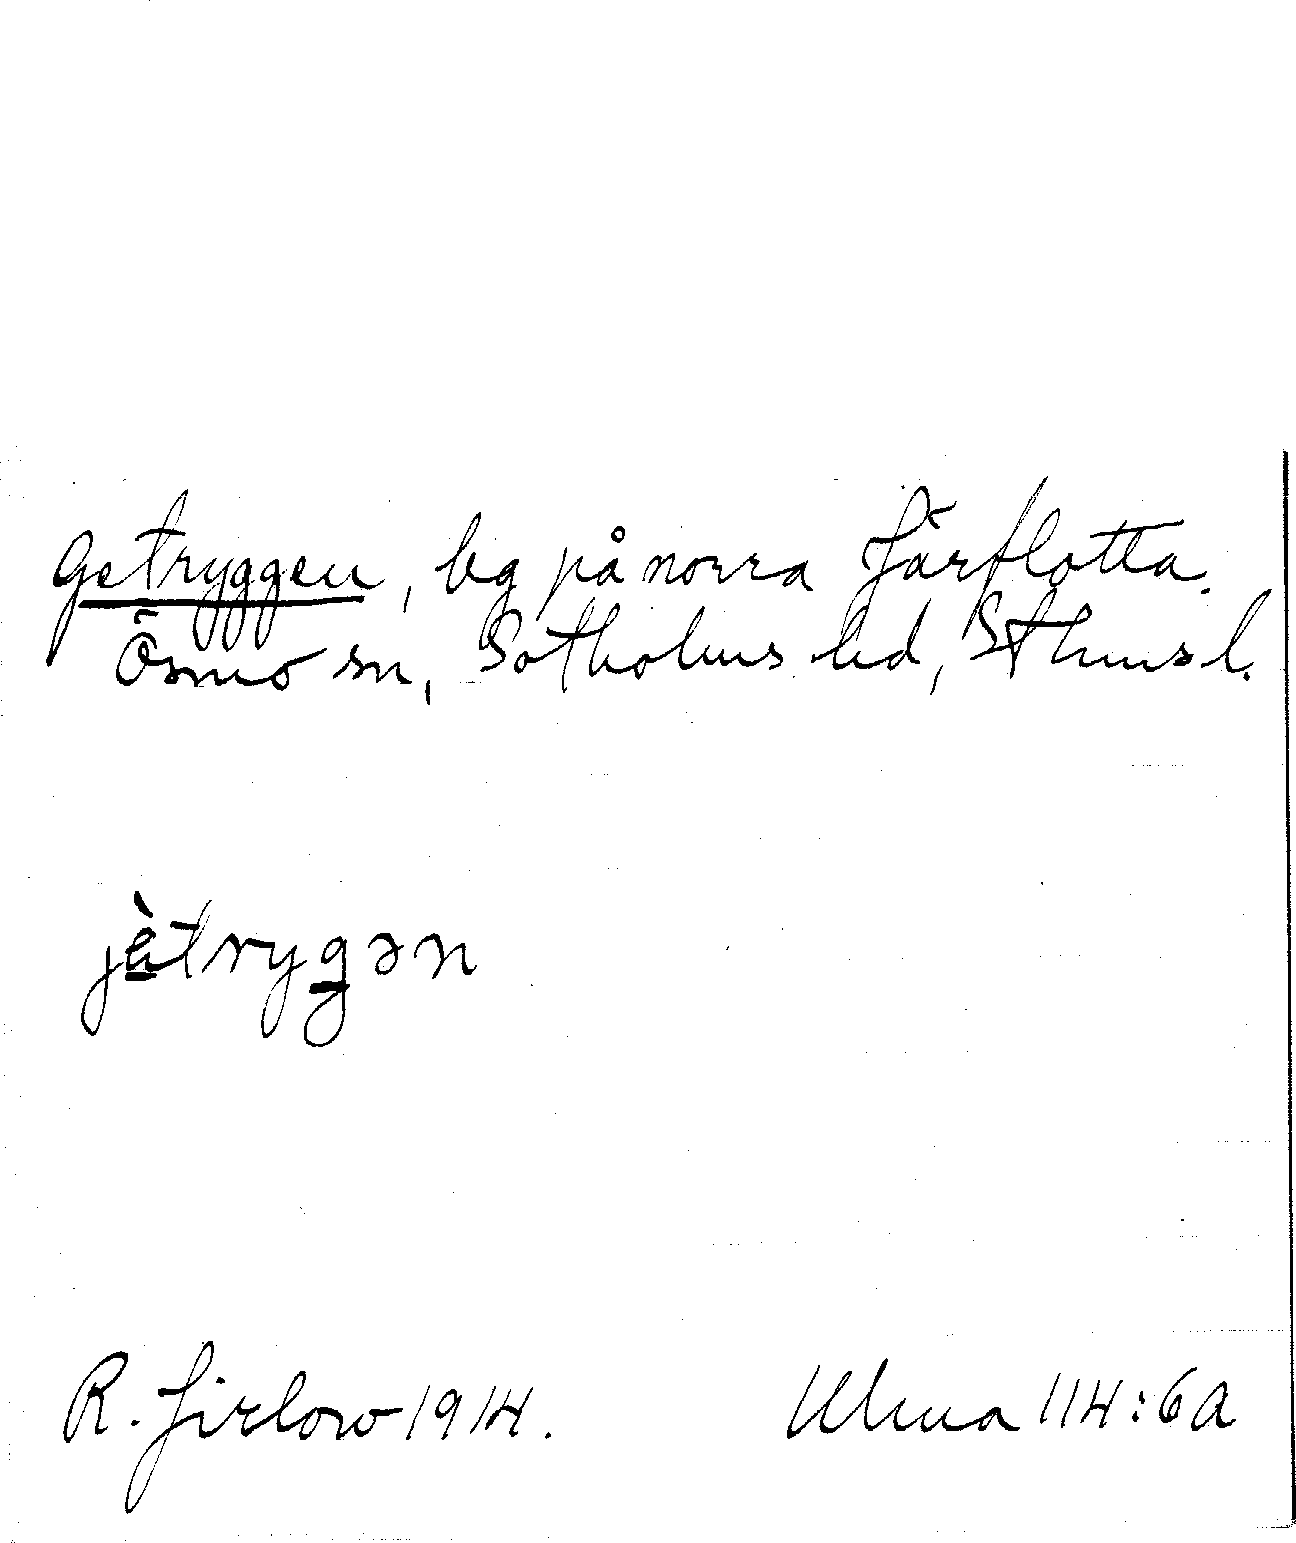 Getryggen, bg på norra Järflotta.
Ösmo sn, Sotholms hd, Sthms l.
jètrygən
R. Jirlow 1914.
Ulma 114:6a